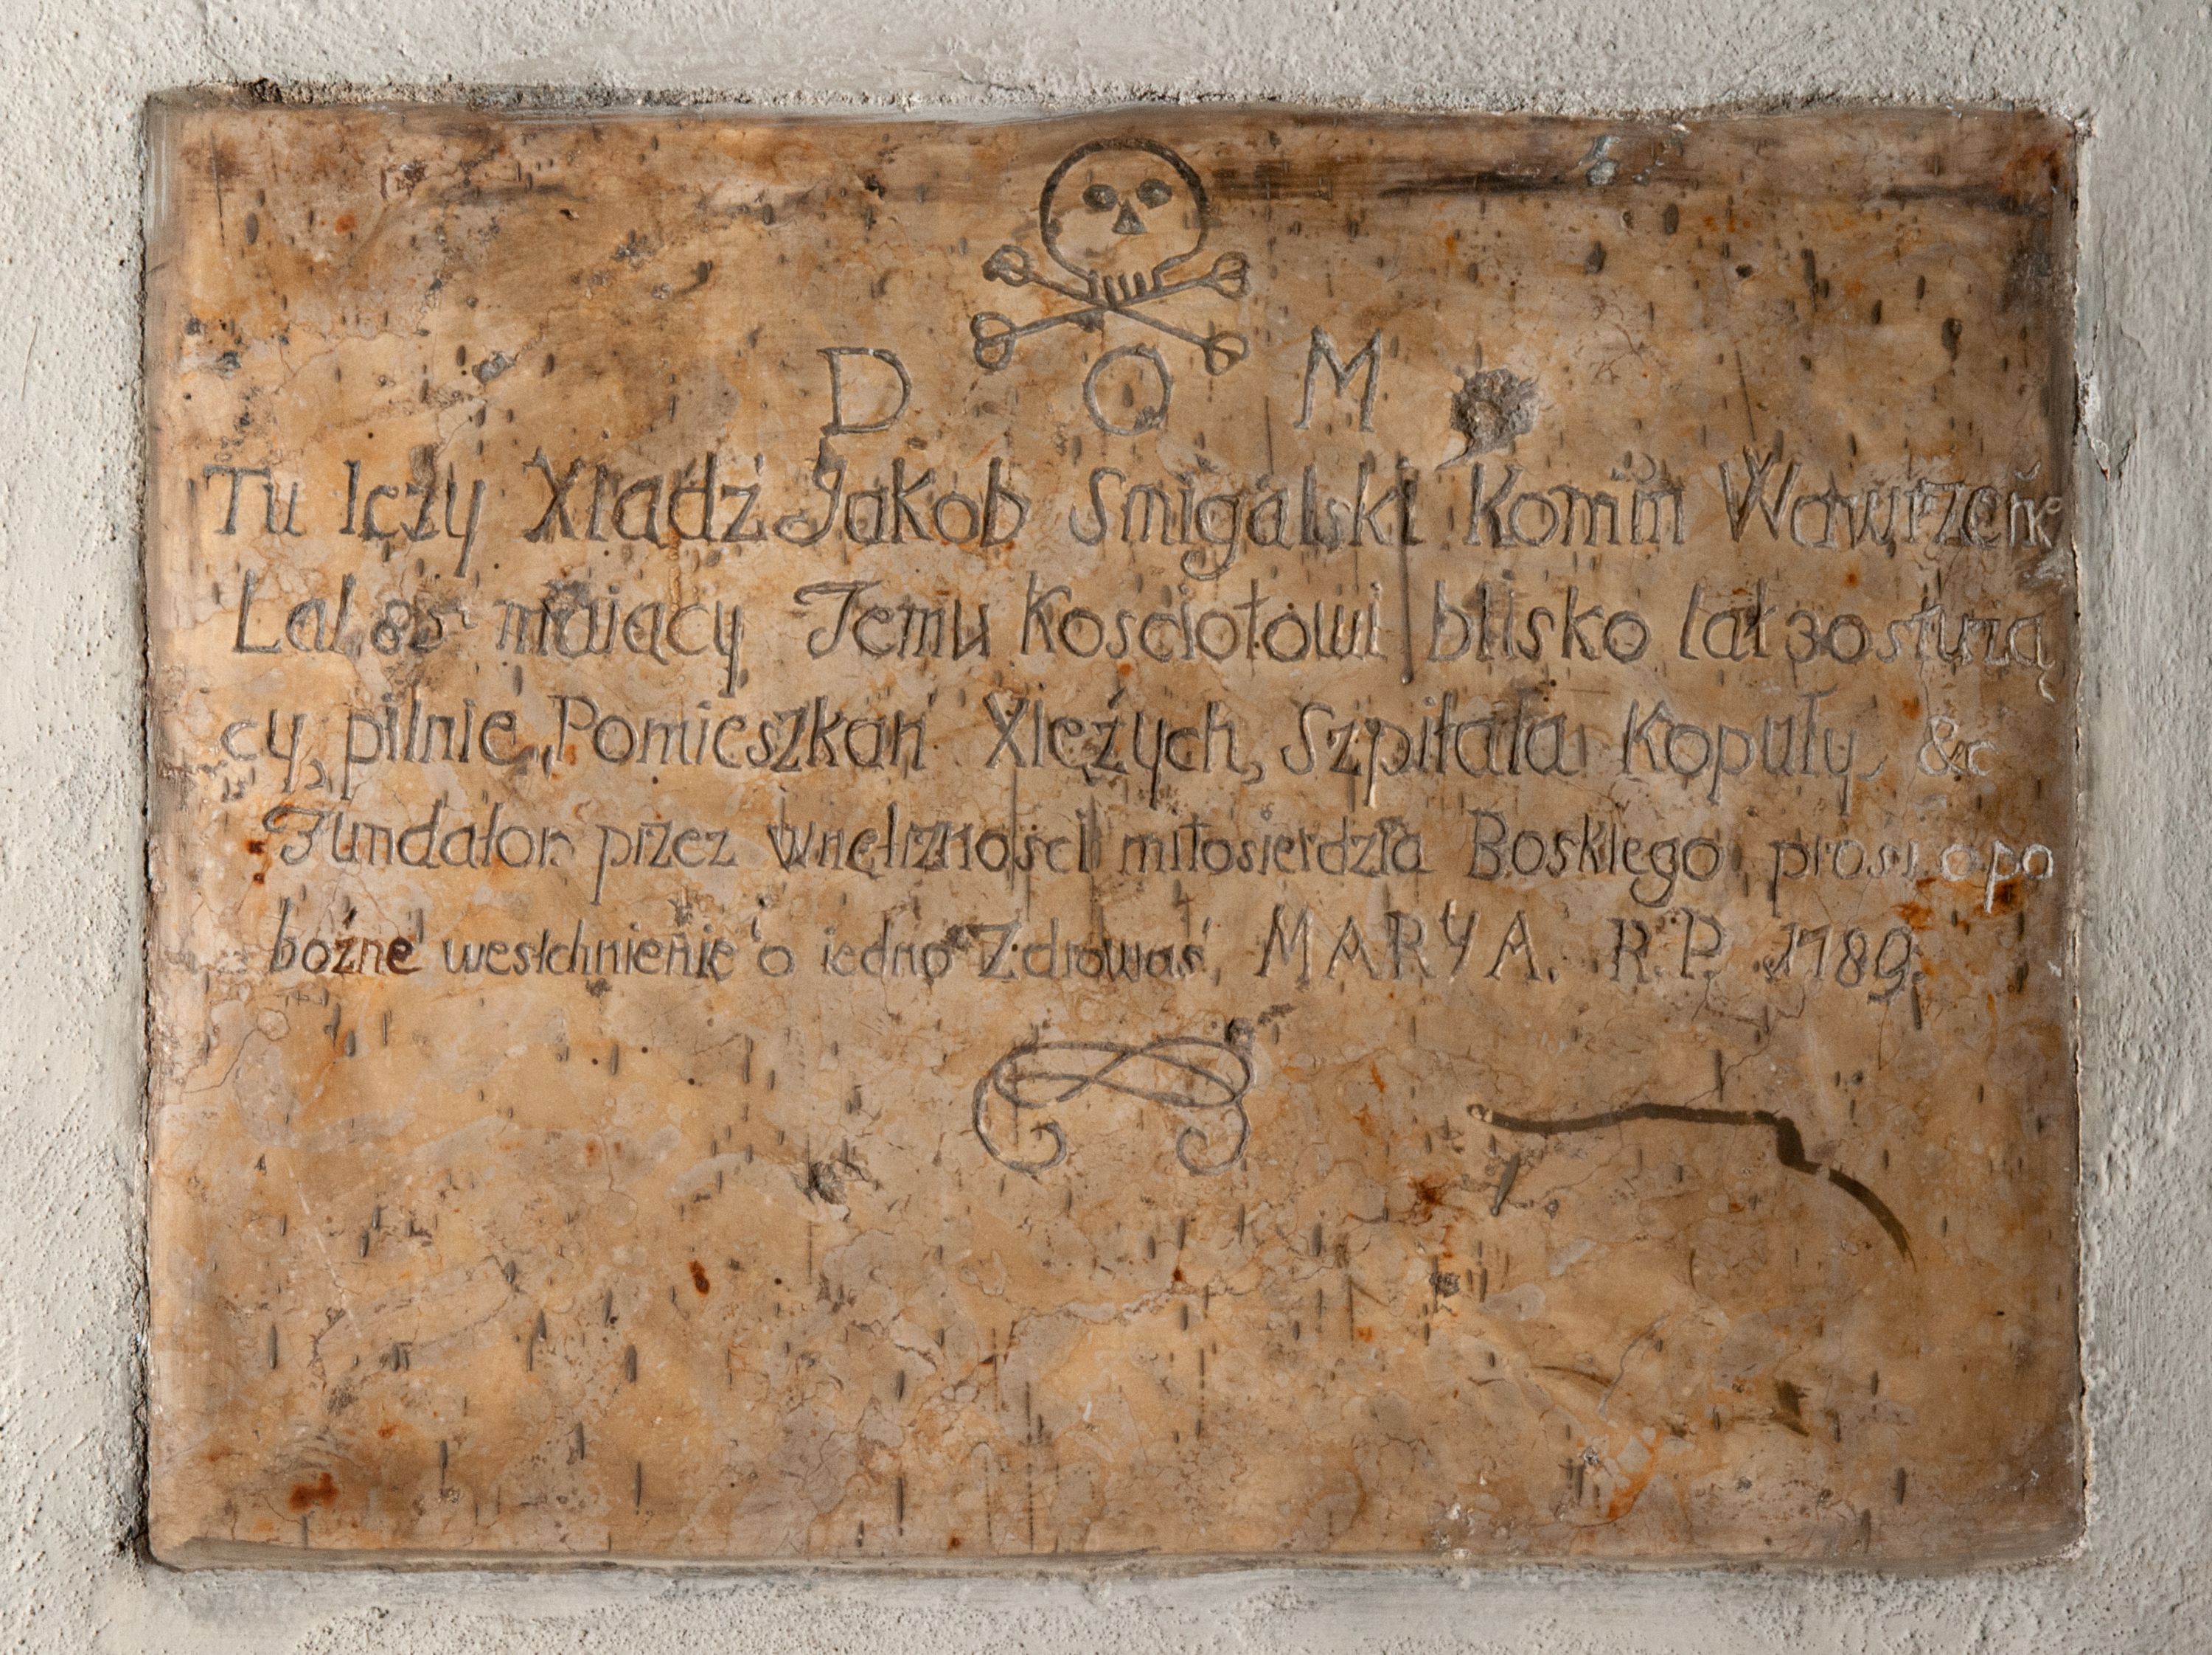 D O M
Tu lezy Xiadz Jakob Smigalski Komin Wawrzeńc
Lat 85 maiący Temu Kosciołowi blisko lat 30 służą
cy, pilnie, Pomieszkań Xięzych, Szpitala Kopuły, &c
Fundator przez wnętrzności miłosierdzia Boskiego prosi o po
bożne westchnienie o iedno Zdrowaś, MARYA. R. P. 1789.